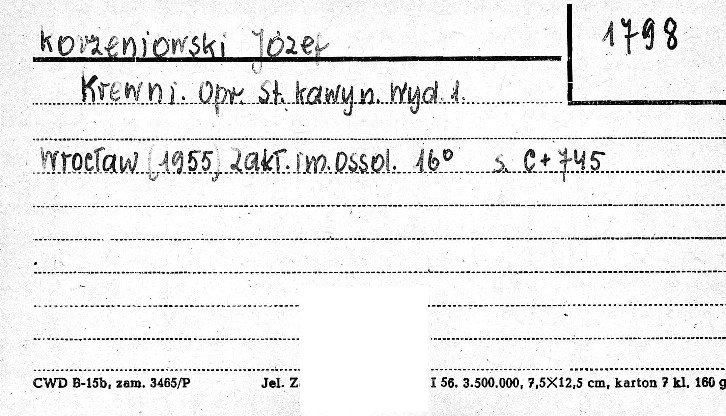 Korzeniowski Józef
1798
Krewni. Opr. St. Kawyn. Wyd. 1.
Wrocław (1955) Zakł. im. Ossol. 16° s. C + 745
CWD B-15b, zam. 3465/P Jel. Z I 56. 3.500.000, 7,5×12,5 cm, karton 7 kl. 160 g